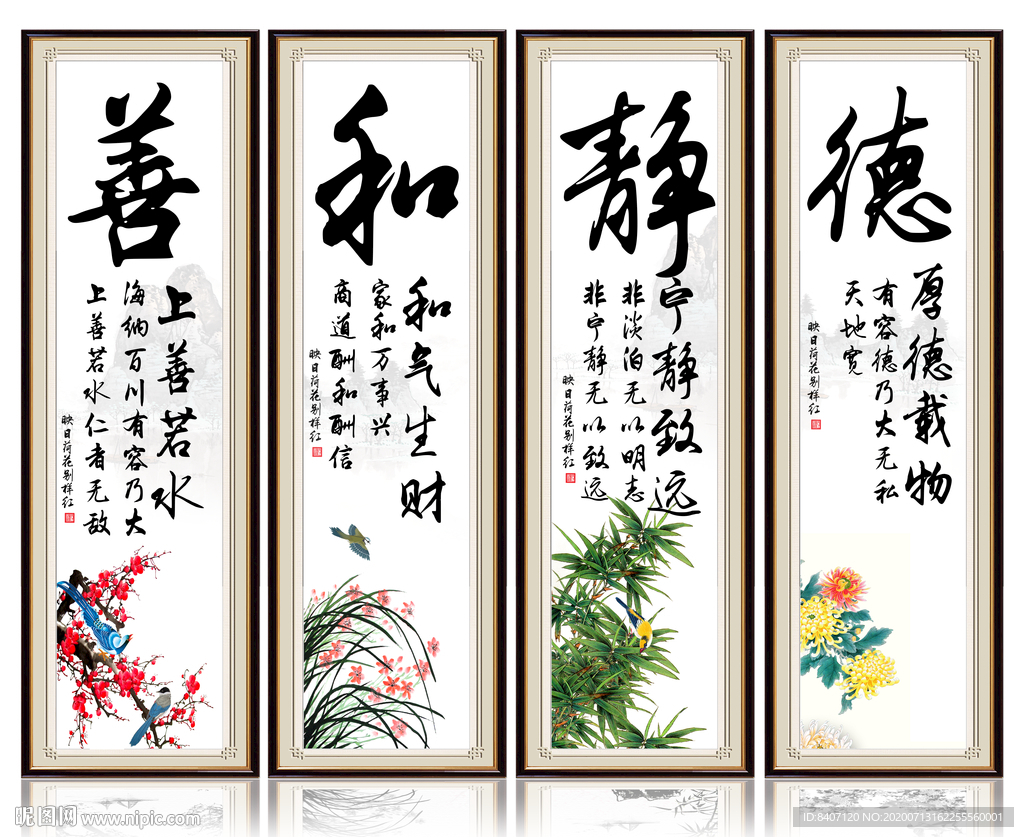 善
上善若水
海纳百川有容乃大
上善若水仁者无敌
映日荷花别样红
和
和气生财
家和万事兴
商道酬和酬信
映日荷花别样红
静
宁静致远
非淡泊无以明志
非宁静无以致远
映日荷花别样红
德
厚德载物
有容德乃大无私
天地宽
映日荷花别样红
昵图网 www.nipic.com
ID:8407120 NO:20200713162255560001